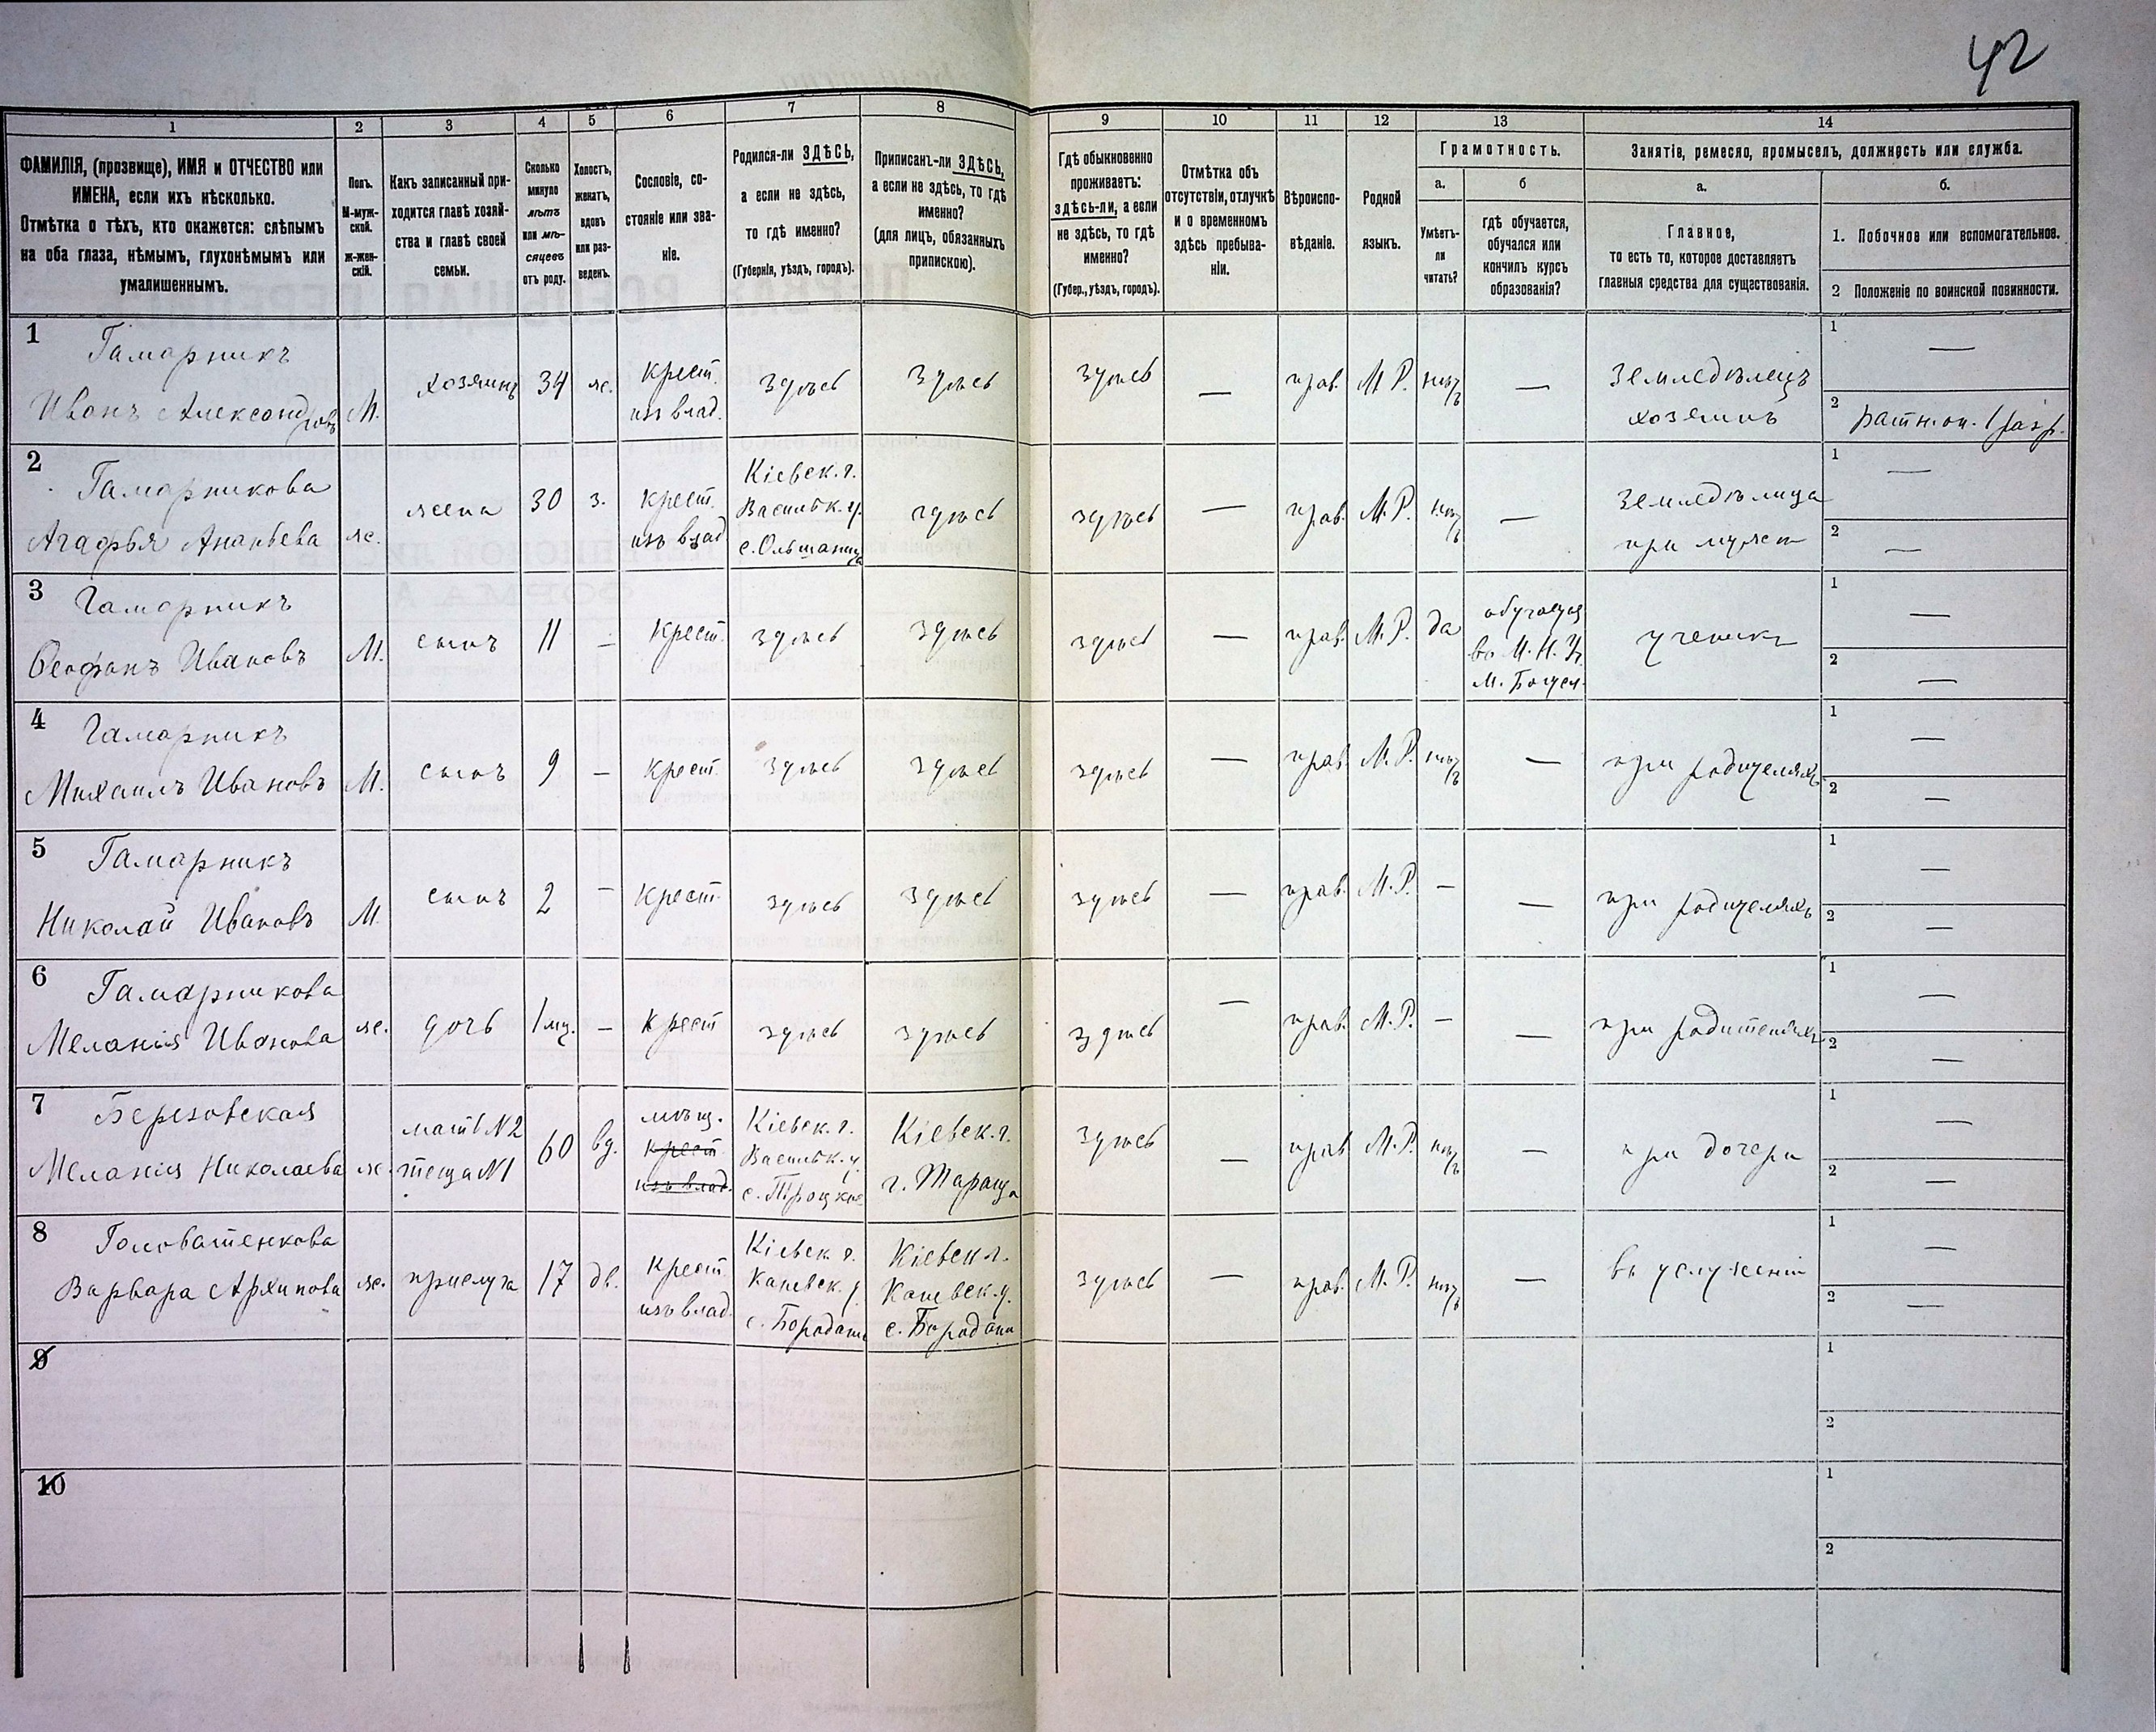 42
1 2 3 4 5 6 7 8 9 10 11 12 13 14
ФАМИЛІЯ, (прозвище), ИМЯ и ОТЧЕСТВО или
ИМЕНА, если ихъ нѣсколько.
Отмѣтка о тѣхъ, кто окажется: слѣпымъ
на оба глаза, нѣмымъ, глухонѣмымъ или
умалишеннымъ.
Полъ.
М-муж-
ской.
Ж-жен-
скій.
Какъ записанный при-
ходится главѣ хозяй-
ства и главѣ своей
семьи.
Сколько
минуло
лѣтъ
или мѣ-
сяцевъ
отъ роду.
Холостъ,
женатъ,
вдовъ
или раз-
веденъ.
Сословіе, со-
стояніе или зва-
ніе.
Родился-ли ЗДѢСЬ,
а если не здѣсь,
то гдѣ именно?
(Губернія, уѣздъ, городъ).
Приписанъ-ли ЗДѢСЬ,
а если не здѣсь, то гдѣ
именно?
(для лицъ, обязанныхъ
припискою).
Гдѣ обыкновенно
проживаетъ:
здѣсь-ли, а если
не здѣсь, то гдѣ
именно?
(Губер., уѣздъ, городъ).
Отмѣтка объ
отсутствіи, отлучкѣ
и о временномъ
здѣсь пребыва-
ніи.
Вѣроиспо-
вѣданіе.
Родной
языкъ.
Грамотность.
а.
Умѣетъ-
ли
читать?
б
гдѣ обучается,
обучался или
кончилъ курсъ
образованія?
Занятіе, ремесло, промыселъ, должность или служба.
а.
Главное,
то есть то, которое доставляетъ
главныя средства для существованія.
б.
1. Побочное или вспомогательное.
2 Положеніе по воинской повинности.
1 Гамарникъ
Иванъ Александровъ
М.
хозяинъ
34
же.
крест.
изъ влад.
здѣсь
здѣсь
здѣсь
—
прав.
М.Р.
нѣтъ
—
Земледѣлецъ
хозяинъ
1 —
2 Ратн. оп. 1 разр.
2 Гамарникова
Агафья Ананьева
же.
жена
30
з.
крест.
изъ влад
Кіевск. г.
Васильк. у.
с. Ольшаница
здѣсь
здѣсь
—
прав.
М.Р.
нѣтъ
—
Земледѣлица
при мужѣ
1 —
2 —
3 Гамарникъ
Ѳеофанъ Ивановъ
М.
сынъ
11
—
крест.
здѣсь
здѣсь
здѣсь
—
прав.
М.Р.
да
обучается
во М. Н. У.
ученикъ
1 —
2 —
4 Гамарникъ
Михаилъ Ивановъ
М.
сынъ
9
—
крест.
здѣсь
здѣсь
здѣсь
—
прав.
М.Р.
нѣтъ
—
при родителяхъ
1 —
2 —
5 Гамарникъ
Николай Ивановъ
М.
сынъ
2
—
крест.
здѣсь
здѣсь
здѣсь
—
прав.
М.Р.
—
—
при родителяхъ
1 —
2 —
6 Гамарникова
Меланія Иванова
же.
дочь
1 мц.
—
крест
здѣсь
здѣсь
здѣсь
—
прав.
М.Р.
—
—
при родителяхъ
1 —
2 —
7 Березовская
Меланія Николаева
же.
мать №2
теща №1
60
вд.
мѣщ.
крест
изъ влад.
Кіевск. г.
Васильк. у.
Кіевск. г.
г. Тараща
здѣсь
—
прав
М.Р.
нѣтъ
—
при дочери
1 —
2 —
8 Головатенкова
Варвара Архипова
же.
прислуга
17
дв.
крест
изъ влад.
Кіевск. г.
Каневск. у.
Кіевск. г.
Каневск. у.
здѣсь
—
прав.
М.Р.
нѣтъ
—
въ услуженіи
1 —
2 —
9
1
2
10
1
2